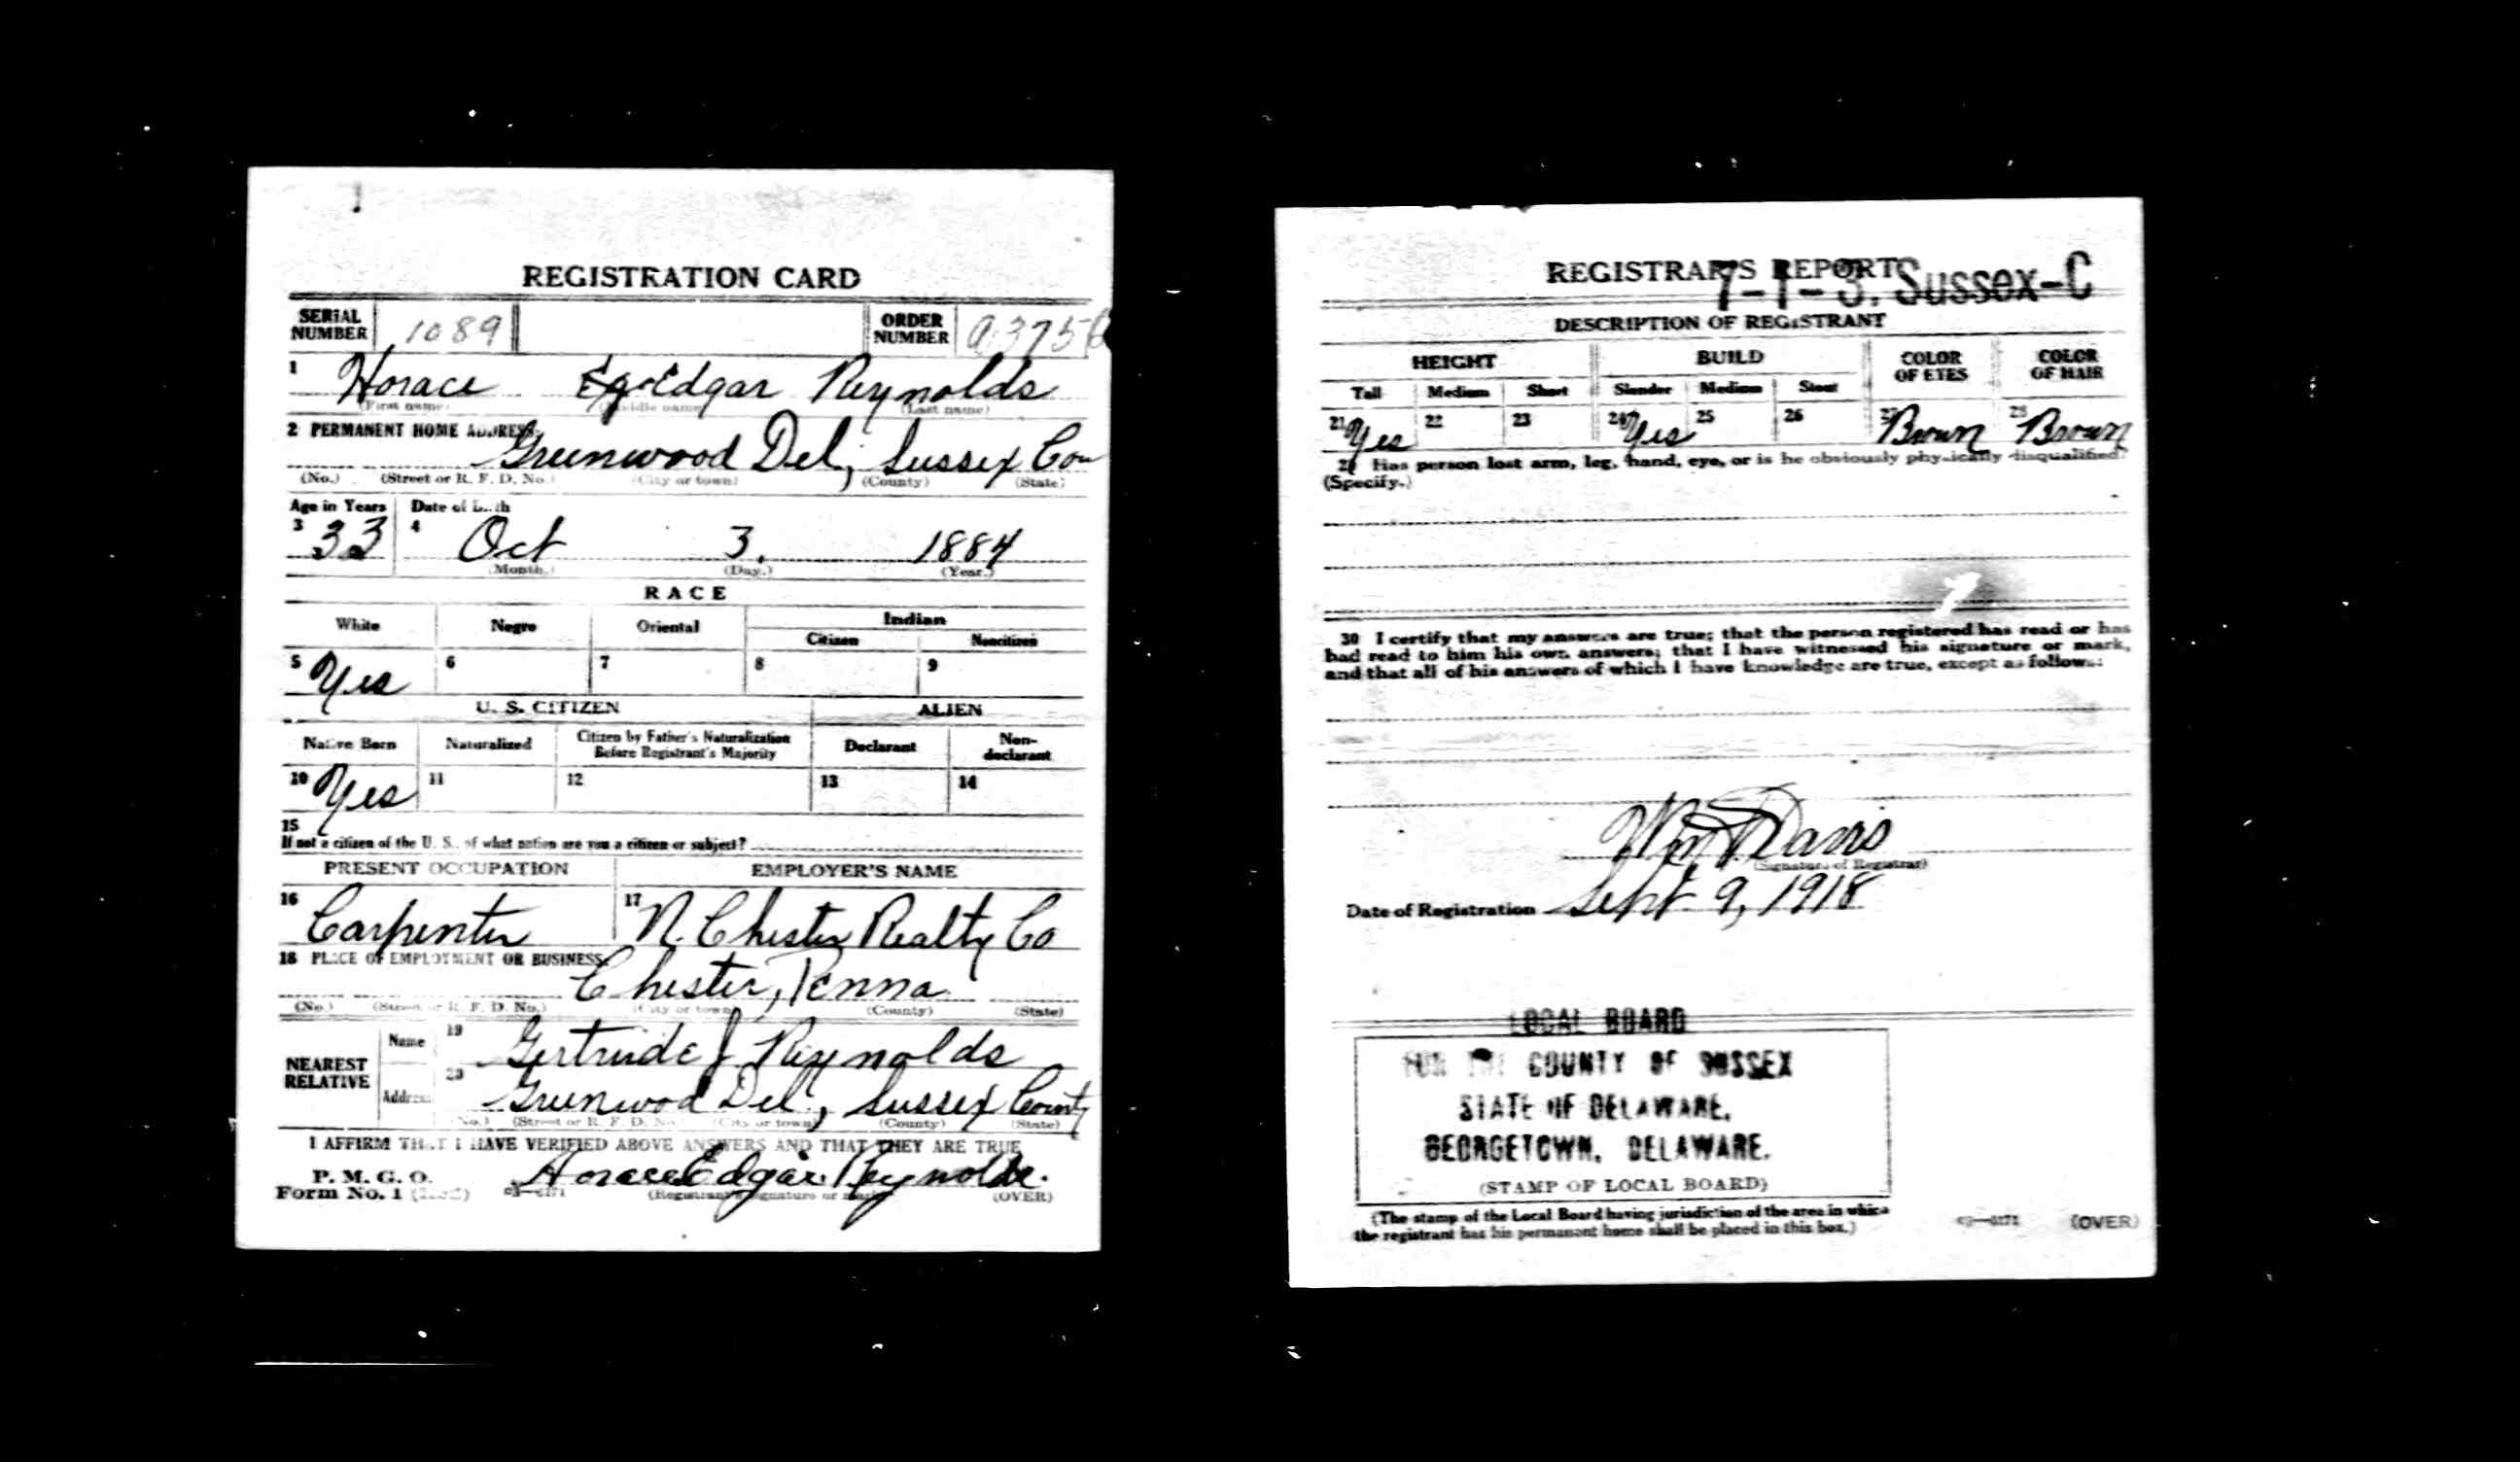 REGISTRATION CARD
SERIAL NUMBER 1089 ORDER NUMBER
1 Horace Edgar Reynolds
(First name) (Middle name) (Last name)
2 PERMANENT HOME ADDRESS:
Greenwood Del, Sussex Cou
(No.) (Street or R. F. D. No.) (City or town) (County) (State)
Age in Years Date of Birth
3 33 4 Oct 3. 1884
(Month.) (Day.) (Year.)
RACE
White Negro Oriental Indian
Citizen Noncitizen
5 Yes 6 7 8 9
U. S. CITIZEN ALIEN
Native Born Naturalized Citizen by Father's Naturalization Before Registrant's Majority Declarant Non-declarant
10 Yes 11 12 13 14
15
If not a citizen of the U. S., of what nation are you a citizen or subject?
PRESENT OCCUPATION EMPLOYER'S NAME
16 Carpenter 17 N. Chester Realty Co
18 PLACE OF EMPLOYMENT OR BUSINESS:
Chester, Penna
(No.) (Street or R. F. D. No.) (City or town) (County) (State)
NEAREST RELATIVE
Name 19 Gertrude J Reynolds
Address 20 Greenwood Del, Sussex County
(No.) (Street or R. F. D. No.) (City or town) (County) (State)
I AFFIRM THAT I HAVE VERIFIED ABOVE ANSWERS AND THAT THEY ARE TRUE
P. M. G. O.
Form No. 1 Horace Edgar Reynolds.
(Registrant's signature or mark) (OVER)
REGISTRAR'S REPORT
7-1-3. Sussex-C
DESCRIPTION OF REGISTRANT
HEIGHT BUILD COLOR OF EYES COLOR OF HAIR
Tall Medium Short Slender Medium Stout
21 Yes 22 23 24 Yes 25 26 27 Brown 28 Brown
29 Has person lost arm, leg, hand, eye, or is he obviously physically disqualified?
(Specify.)
30 I certify that my answers are true; that the person registered has read or has
had read to him his own answers; that I have witnessed his signature or mark,
and that all of his answers of which I have knowledge are true, except as follows:
Davis
(Signature of Registrar)
Date of Registration Sept 9, 1918
LOCAL BOARD
FOR THE COUNTY OF SUSSEX
STATE OF DELAWARE,
GEORGETOWN, DELAWARE.
(STAMP OF LOCAL BOARD)
(The stamp of the Local Board having jurisdiction of the area in which
the registrant has his permanent home shall be placed in this box.)
(OVER)